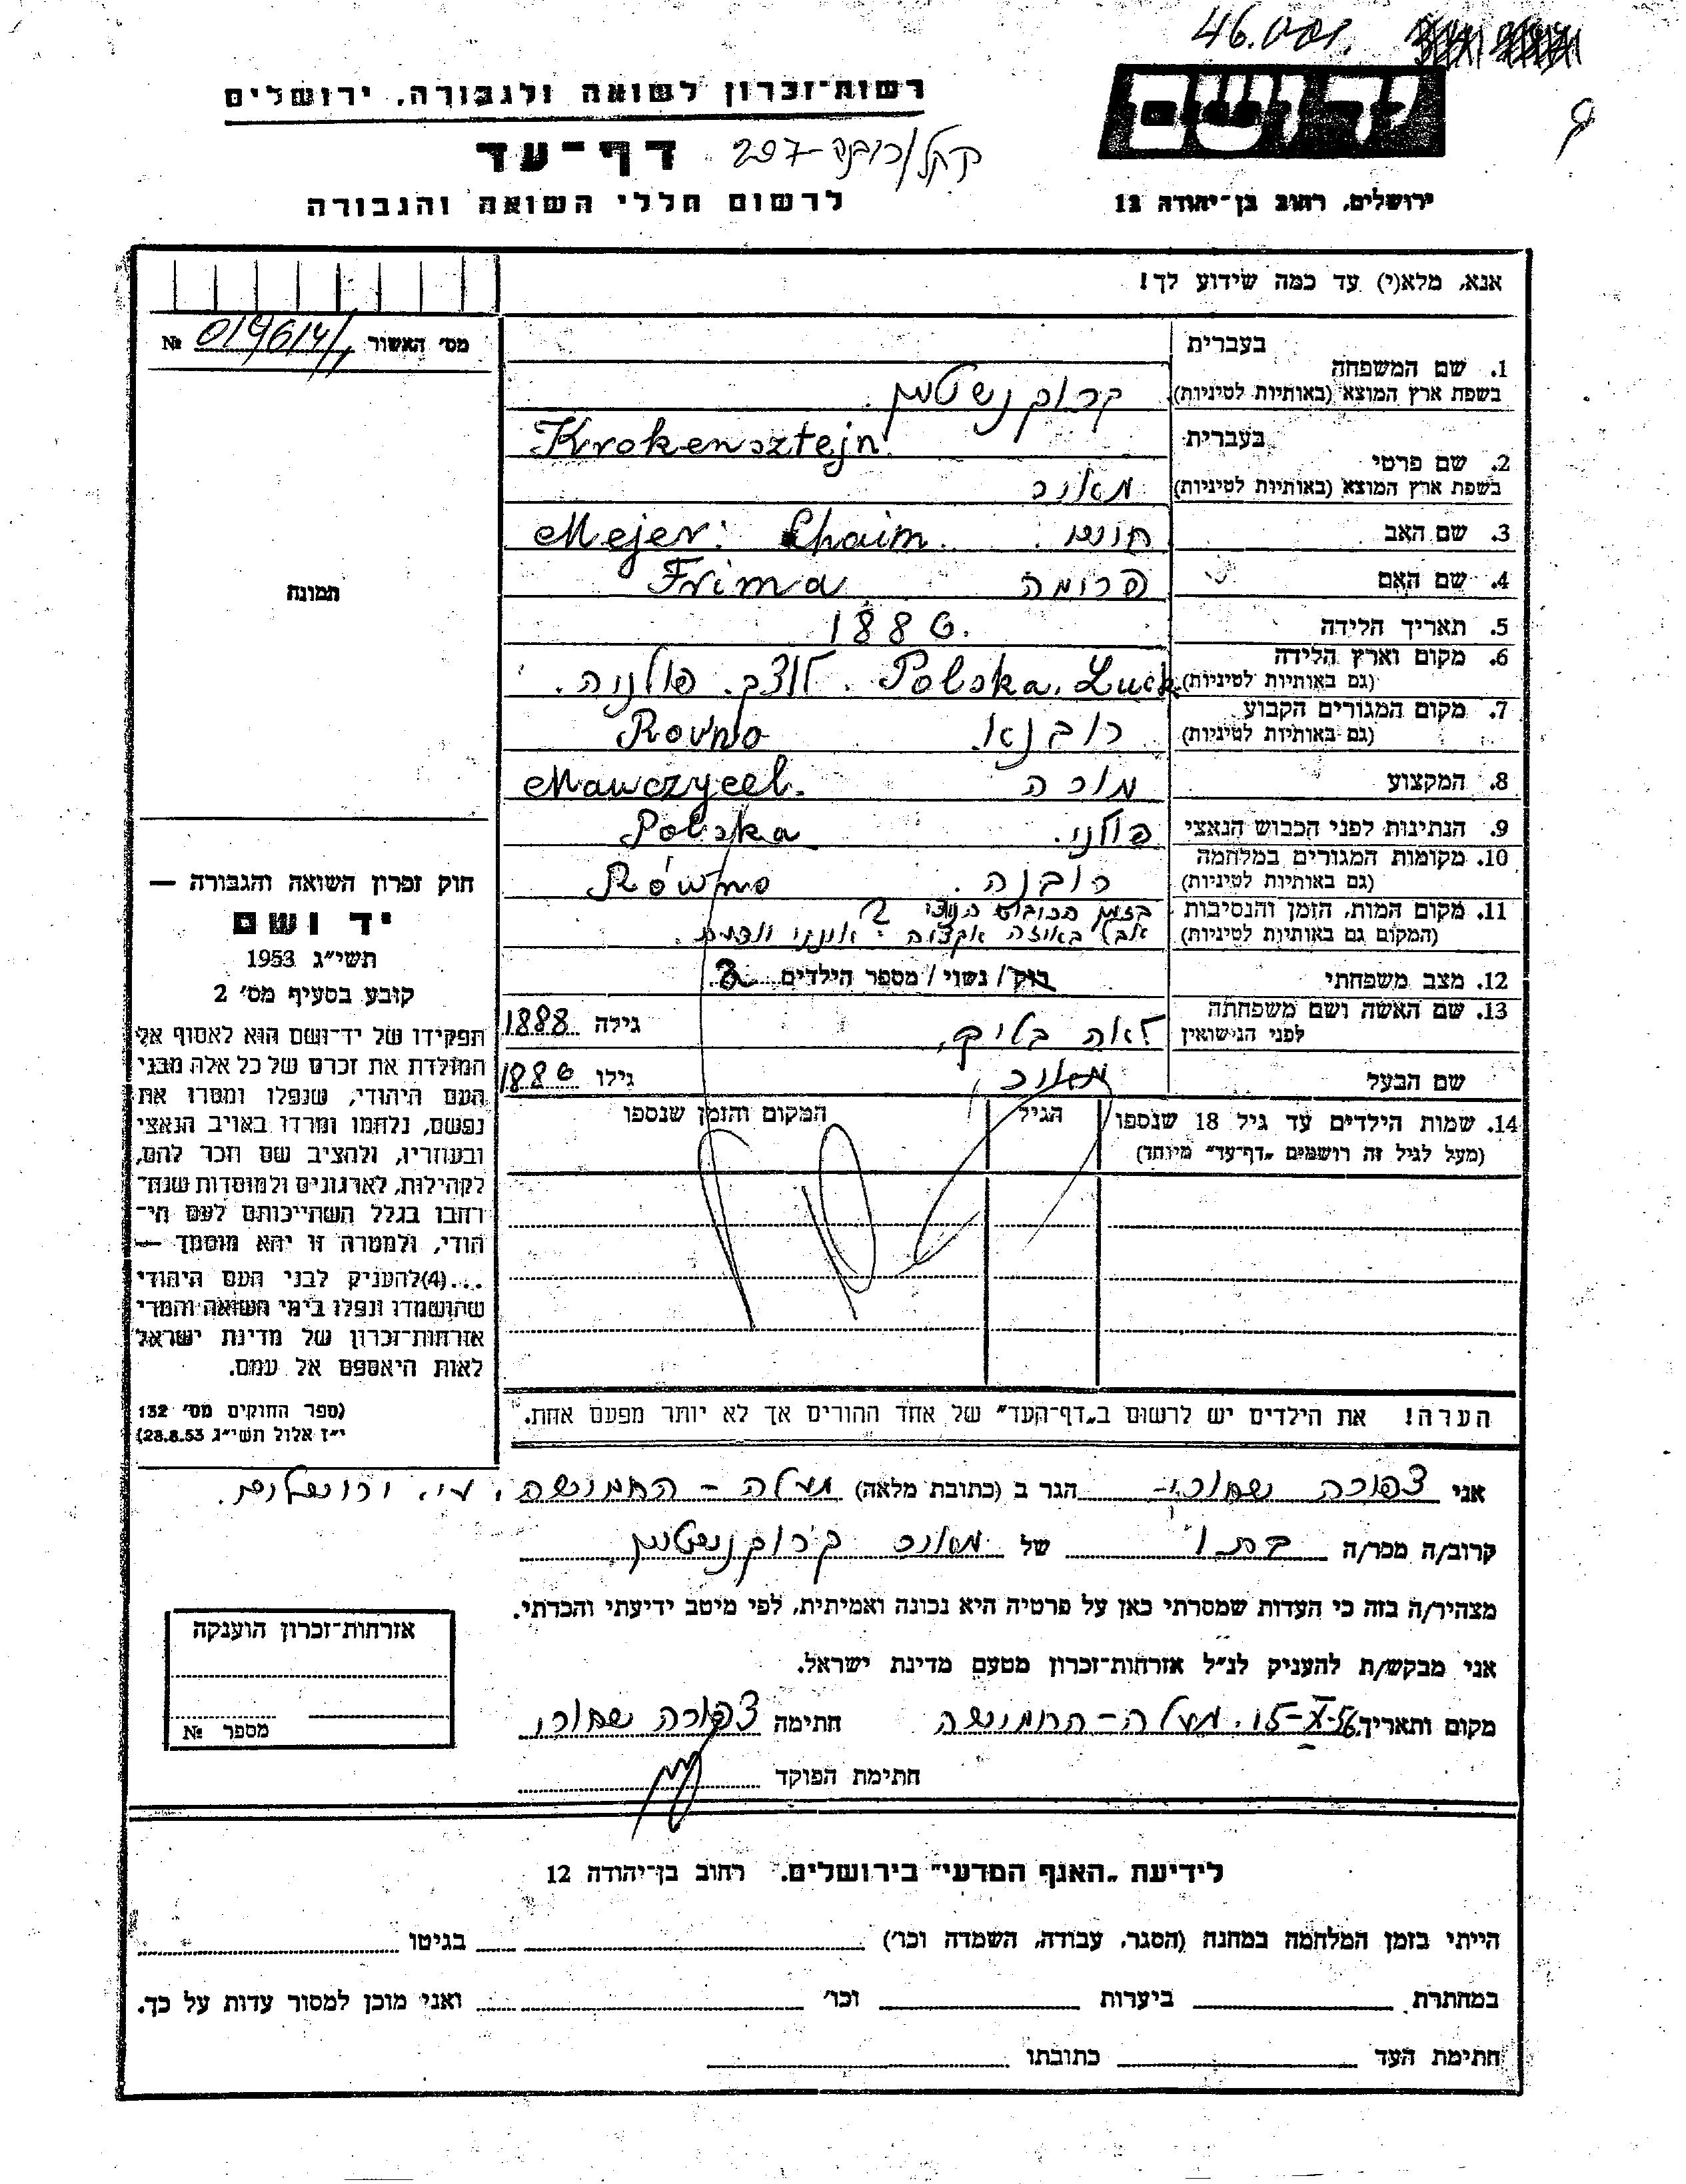 46.001.
רשות־זכרון לשואה ולגבורה, ירושלים
יד ושם
דף־עד
קהל/רובנה-297
לרשום חללי השואה והגבורה
ירושלים, רחוב בן־יהודה 12
אנא, מלא(י) עד כמה שידוע לך!
מס׳ האשור 019614/ №
תמונה
בעברית
1. שם המשפחה
בשפת ארץ המוצא (באותיות לטיניות) קרוקנשטיין.
בעברית Krokensztejn.
2. שם פרטי
בשפת ארץ המוצא (באותיות לטיניות) מאיר
3. שם האב חיים. Mejer: Chaim.
4. שם האם פרומה Frima
5. תאריך הלידה 1886.
6. מקום וארץ הלידה
(גם באותיות לטיניות) Polska, Luck. לוצק. פולניה.
7. מקום המגורים הקבוע
(גם באותיות לטיניות) רובנא. Rovno
8. המקצוע מורה Nawczyciel.
9. הנתינות לפני הכבוש הנאצי פולני. Polska
10. מקומות המגורים במלחמה
(גם באותיות לטיניות) רובנה. Równo
11. מקום המות, הזמן והנסיבות בזמן הכיבוש הנאצי
(המקום גם באותיות לטיניות) אבל באיזה אקציה - אינני יודעת.
12. מצב משפחתי רוק/ נשוי/ מספר הילדים 3
13. שם האשה ושם משפחתה
לפני הנישואין לאה בליק, גילה 1888
שם הבעל מאיר גילו 1886
14. שמות הילדים עד גיל 18 שנספו
(מעל לגיל זה רושמים „דף־עד״ מיוחד)
הגיל
המקום והזמן שנספו
הערה! את הילדים יש לרשום ב„דף־העד״ של אחד ההורים אך לא יותר מפעם אחת.
חוק זכרון השואה והגבורה —
יד ושם
תשי״ג 1953
קובע בסעיף מס׳ 2
תפקידו של יד־ושם הוא לאסוף אל
המולדת את זכרם של כל אלה מבני
העם היהודי, שנפלו ומסרו את
נפשם, נלחמו ומרדו באויב הנאצי
ובעוזריו, ולהציב שם וזכר להם,
לקהילות, לארגונים ולמוסדות שנח־
רבו בגלל השתייכותם לעם הי־
הודי, ולמטרה זו יהא מוסמך —
...(4) להעניק לבני העם היהודי
שהושמדו ונפלו בימי השואה והמרי
אזרחות־זכרון של מדינת ישראל
לאות היאספם אל עמם.
(ספר החוקים מס׳ 132
י״ז אלול תשי״ג 28.8.53)
אני צפורה שחורי- הגר ב (כתובת מלאה) מעלה - החמישה, ירושלים.
קרוב/ה מכר/ה בתו של מאיר קרוקנשטיין
מצהיר/ה בזה כי העדות שמסרתי כאן על פרטיה היא נכונה ואמיתית, לפי מיטב ידיעתי והכרתי.
אני מבקש/ת להעניק לנ״ל אזרחות־זכרון מטעם מדינת ישראל.
מקום ותאריך 15-X-56. מעלה-החמישה חתימה צפורה שחורי
חתימת הפוקד
אזרחות־זכרון הוענקה
מספר №
לידיעת „האגף המדעי״ בירושלים. רחוב בן־יהודה 12
הייתי בזמן המלחמה במחנה (הסגר, עבודה, השמדה וכו׳) בגיטו
במחתרת ביערות וכו׳ ואני מוכן למסור עדות על כך.
חתימת העד כתובתו